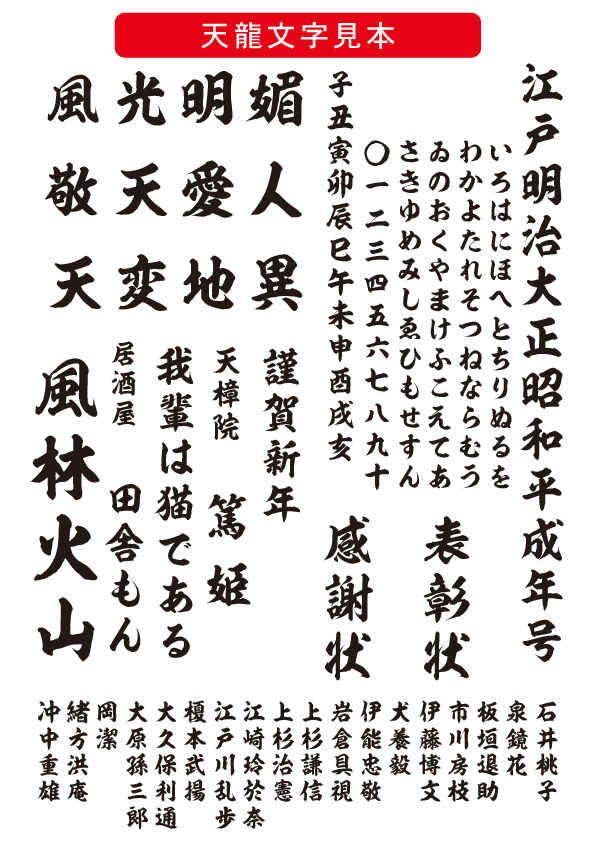 天龍文字見本
江戸明治大正昭和平成年号
いろはにほへとちりぬるを
わかよたれそつねならむう
ゐのおくやまけふこえてあ
さきゆめみしゑひもせすん
〇一二三四五六七八九十
子丑寅卯辰巳午未申酉戌亥
表彰状
感謝状
媚人異
明愛地
光天変
風敬天
謹賀新年
天樟院 篤姫
我輩は猫である
居酒屋 田舎もん
風林火山
石井桃子
泉鏡花
板垣退助
市川房枝
伊藤博文
犬養毅
伊能忠敬
岩倉具視
上杉謙信
上杉治憲
江崎玲於奈
江戸川乱歩
榎本武揚
大久保利通
大原孫三郎
岡潔
緒方洪庵
冲中重雄